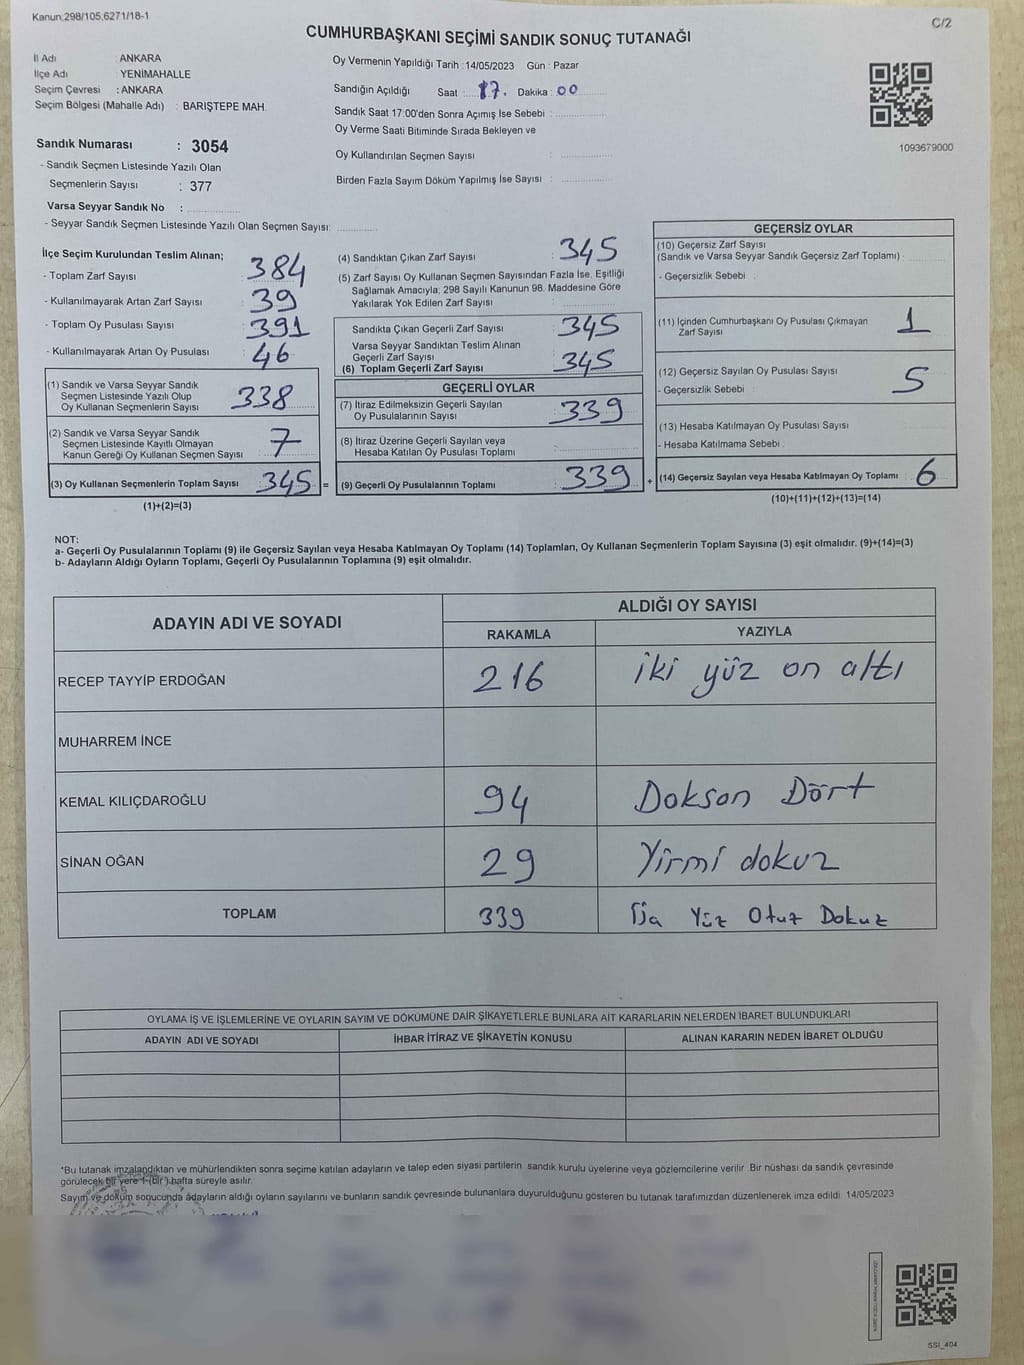 Kanun:298/105,6271/18-1
C/2
CUMHURBAŞKANI SEÇİMİ SANDIK SONUÇ TUTANAĞI
İl Adı : ANKARA
İlçe Adı : YENİMAHALLE
Seçim Çevresi : ANKARA
Seçim Bölgesi (Mahalle Adı) : BARIŞTEPE MAH.
Sandık Numarası : 3054
- Sandık Seçmen Listesinde Yazılı Olan
Seçmenlerin Sayısı : 377
Varsa Seyyar Sandık No :
- Seyyar Sandık Seçmen Listesinde Yazılı Olan Seçmen Sayısı:
Oy Vermenin Yapıldığı Tarih : 14/05/2023 Gün : Pazar
Sandığın Açıldığı Saat : 17. Dakika : 00
Sandık Saat 17:00'den Sonra Açımış İse Sebebi :
Oy Verme Saati Bitiminde Sırada Bekleyen ve
Oy Kullandırılan Seçmen Sayısı :
Birden Fazla Sayım Döküm Yapılmış İse Sayısı :
1093679000
İlçe Seçim Kurulundan Teslim Alınan;
- Toplam Zarf Sayısı : 384
- Kullanılmayarak Artan Zarf Sayısı : 39
- Toplam Oy Pusulası Sayısı : 391
- Kullanılmayarak Artan Oy Pusulası : 46
(1) Sandık ve Varsa Seyyar Sandık
Seçmen Listesinde Yazılı Olup
Oy Kullanan Seçmenlerin Sayısı : 338
(2) Sandık ve Varsa Seyyar Sandık
Seçmen Listesinde Kayıtlı Olmayan
Kanun Gereği Oy Kullanan Seçmen Sayısı : 7
(3) Oy Kullanan Seçmenlerin Toplam Sayısı : 345 =
(1)+(2)=(3)
(4) Sandıktan Çıkan Zarf Sayısı : 345
(5) Zarf Sayısı Oy Kullanan Seçmen Sayısından Fazla İse, Eşitliği
Sağlamak Amacıyla; 298 Sayılı Kanunun 98. Maddesine Göre
Yakılarak Yok Edilen Zarf Sayısı :
Sandıkta Çıkan Geçerli Zarf Sayısı : 345
Varsa Seyyar Sandıktan Teslim Alınan
Geçerli Zarf Sayısı :
(6) Toplam Geçerli Zarf Sayısı : 345
GEÇERLİ OYLAR
(7) İtiraz Edilmeksizin Geçerli Sayılan
Oy Pusulalarının Sayısı : 339
(8) İtiraz Üzerine Geçerli Sayılan veya
Hesaba Katılan Oy Pusulası Toplamı :
(9) Geçerli Oy Pusulalarının Toplamı : 339 +
GEÇERSİZ OYLAR
(10) Geçersiz Zarf Sayısı
(Sandık ve Varsa Seyyar Sandık Geçersiz Zarf Toplamı) :
- Geçersizlik Sebebi :
(11) İçinden Cumhurbaşkanı Oy Pusulası Çıkmayan
Zarf Sayısı : 1
(12) Geçersiz Sayılan Oy Pusulası Sayısı : 5
- Geçersizlik Sebebi :
(13) Hesaba Katılmayan Oy Pusulası Sayısı :
- Hesaba Katılmama Sebebi :
(14) Geçersiz Sayılan veya Hesaba Katılmayan Oy Toplamı : 6
(10)+(11)+(12)+(13)=(14)
NOT:
a- Geçerli Oy Pusulalarının Toplamı (9) ile Geçersiz Sayılan veya Hesaba Katılmayan Oy Toplamı (14) Toplamları, Oy Kullanan Seçmenlerin Toplam Sayısına (3) eşit olmalıdır. (9)+(14)=(3)
b- Adayların Aldığı Oyların Toplamı, Geçerli Oy Pusulalarının Toplamına (9) eşit olmalıdır.
ADAYIN ADI VE SOYADI
ALDIĞI OY SAYISI
RAKAMLA YAZIYLA
RECEP TAYYİP ERDOĞAN 216 iki yüz on altı
MUHARREM İNCE
KEMAL KILIÇDAROĞLU 94 Dokson Dört
SİNAN OĞAN 29 Yirmi dokuz
TOPLAM 339 Yüz Otuz Dokuz
OYLAMA İŞ VE İŞLEMLERİNE VE OYLARIN SAYIM VE DÖKÜMÜNE DAİR ŞİKAYETLERLE BUNLARA AİT KARARLARIN NELERDEN İBARET BULUNDUKLARI
ADAYIN ADI VE SOYADI İHBAR İTİRAZ VE ŞİKAYETİN KONUSU ALINAN KARARIN NEDEN İBARET OLDUĞU
*Bu tutanak imzalandıktan ve mühürlendikten sonra seçime katılan adayların ve talep eden siyasi partilerin sandık kurulu üyelerine veya gözlemcilerine verilir. Bir nüshası da sandık çevresinde
görülecek bir yere 1 (bir) hafta süreyle asılır.
Sayım ve döküm sonucunda adayların aldığı oyların sayılarını ve bunların sandık çevresinde bulunanlara duyurulduğunu gösteren bu tutanak tarafımızdan düzenlenerek imza edildi. 14/05/2023
SSİ_404